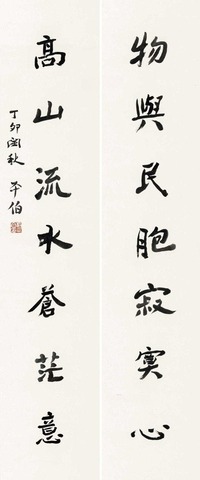 物與民胞寂寞心
高山流水蒼茫意
丁卯闰秋 平伯